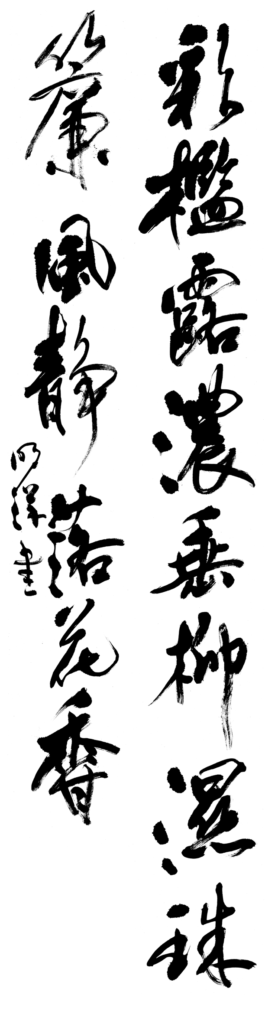 彩檻露濃垂柳濕珠
簾風靜落花香
明鏵書